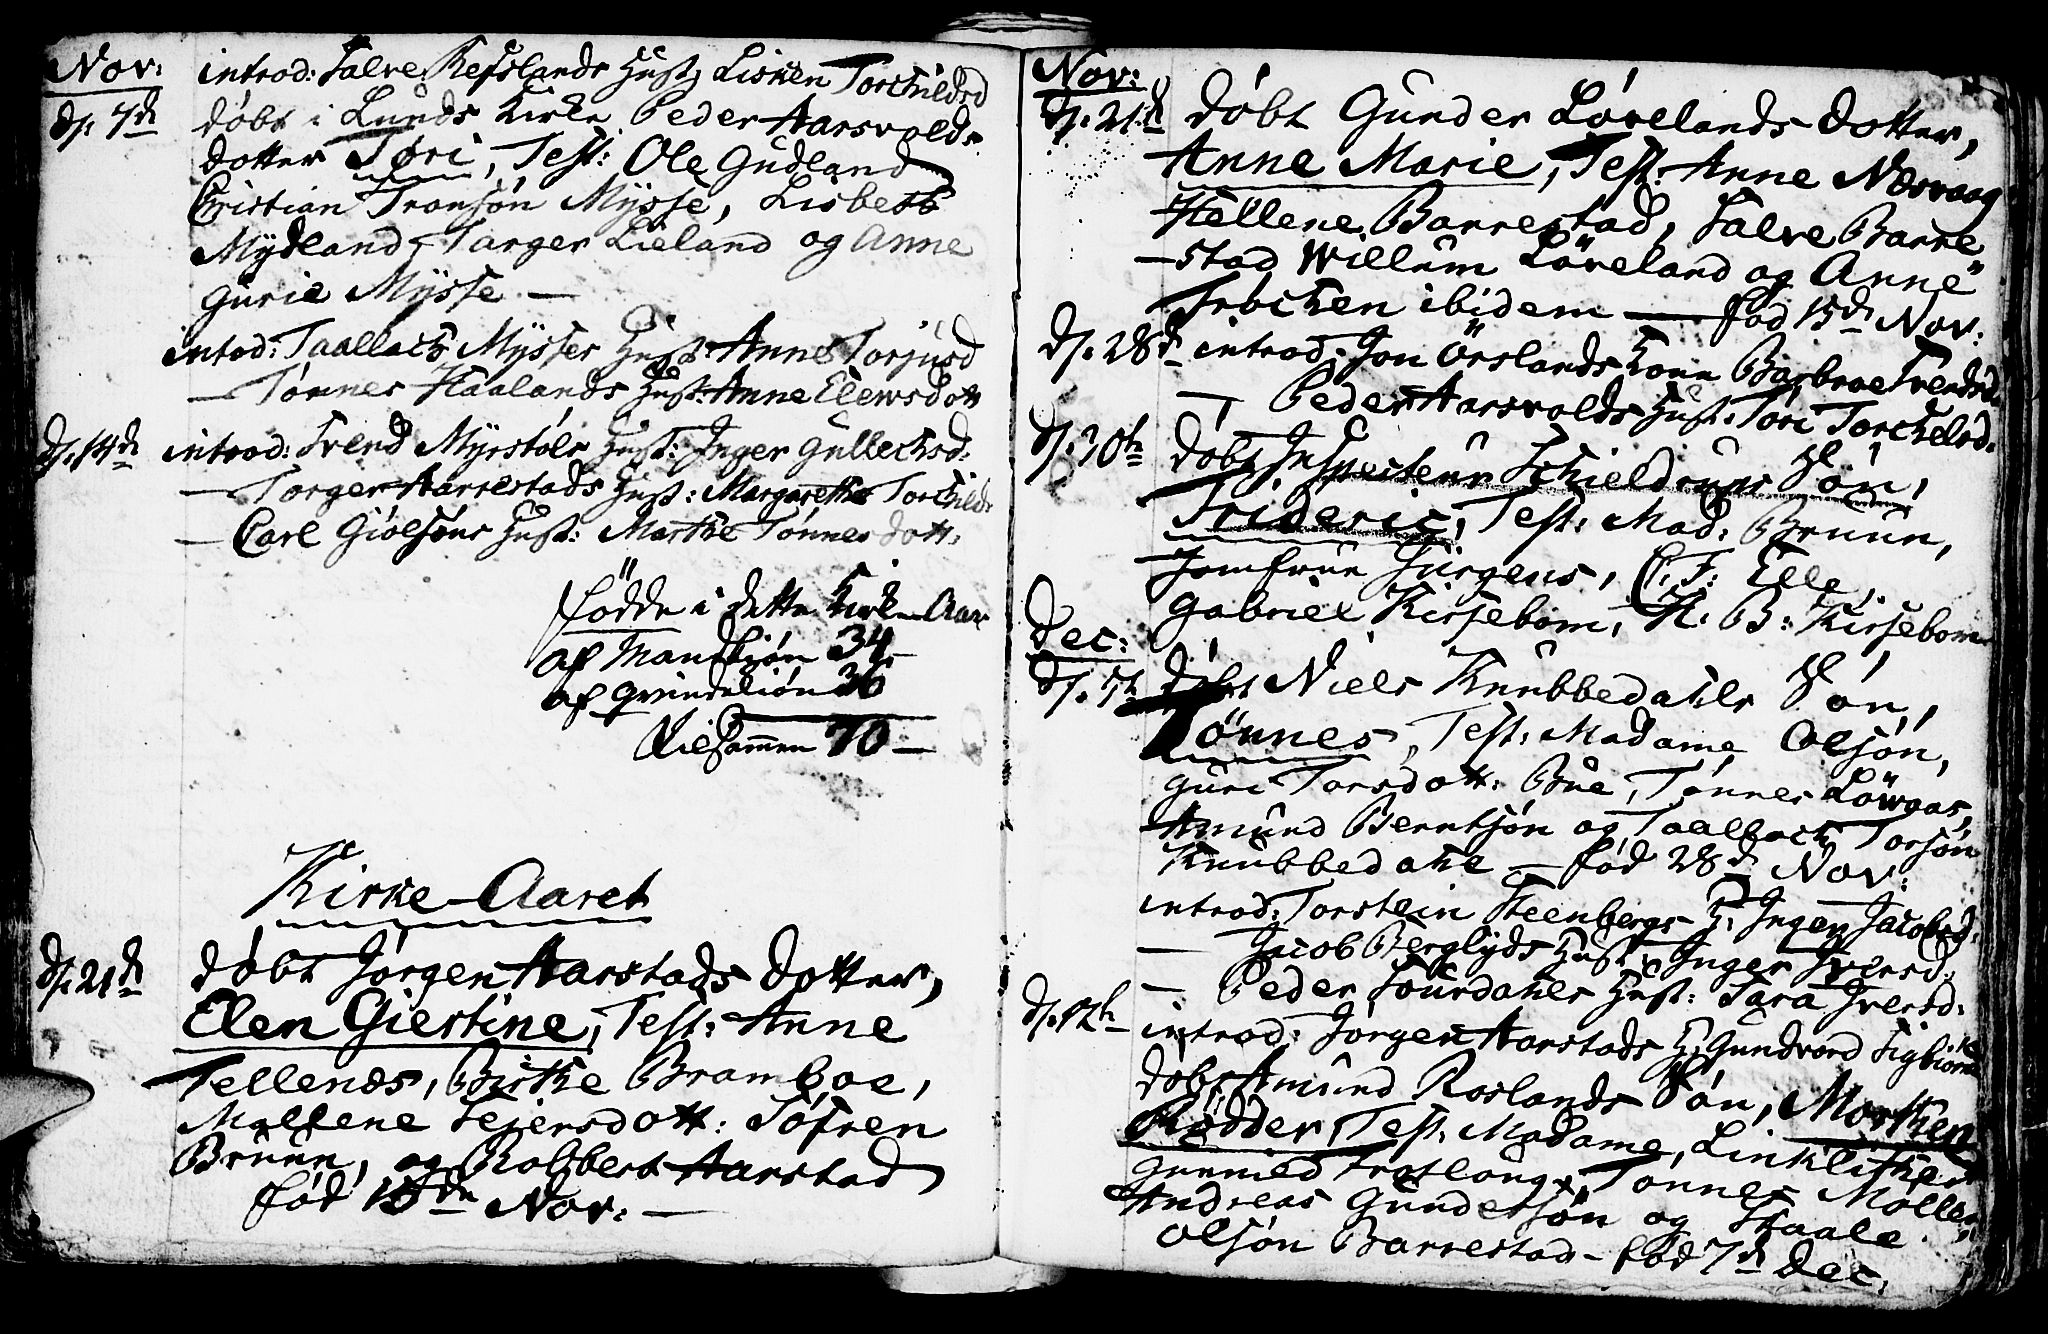 Nov: introd: Salve Refslands Hust; Lisken Torchildsd
d/: 7de døbt i Lunds Kirke Peder Aarsvolds
dotter Tøri, Test: Ole Gudland
Cristian Tronsøn Mysse, Lisbeth
Mydland, Targer Lieland og Anne
Gurie Mysse —
intod: Taallach Mysses Hust: Anne Torjusd
— Tønnes Haalands Hust: Anne Elewsdott
d/: 14de introd: Trend Myrstøls Hust: Inger Gullechsd:
— Torger Aarrestads Hust: Margarethe Torchilds:
— Carl Giølsøns Hust: Marthe Tønnesdott:
fødde i dette Kirke-Aar
af Mandkiøn 34 —
af Qvindekiøn 36
Tilsammen 70 —
Kirke-Aaret
d/: 21de døbt Jørgen Aarstads dotter,
Elen Giestine, Test: Anne
Tellenes, Birthe Bramboe,
Mallene Sejersdott: Søfren
Bruun, og Robbert Aarstad
fød 15de Nov: —
Nov:
d/: 21de døbt Gunder Løvelands dotter,
Anne Marie, Test: Anne Nesvaag
Hellene Barrestad, Salve Barre
-stad Willum Løveland og Anne
Trochen ibidem — fød 15de Nov:
d/: 28de introd: Jon Örslands Kone Barbroe Trendsd:
— Peder Aarsvolds Hust: Tøri Torchelsd:
d/: 30te døbt Inspecteur Schieldrups Søn,
Frideric, Test: Mad: Bruun,
Jomfrue Jürgens, C: F: Elle,
Gabriel Kirsebom, H: B: Kirsebom
Dec:
d/: 5te døbt Niels Knubbedahls Søn,
Tönnes, Test: Madame Olsøn,
Guri Torsdott: Bue, Tønnes Löwaas,
Amund Berntsøn og Taallach Torsøn
Knubbedahl — fød 28de Nov:
introd: Torstein Steenbergs H: Inger Jacobsd:
— Jacob Berglyds Hust: Inger Iversd:
— Peder Suurdahls Hust: Sara Iversd:
d/: 12te introd: Jørgen Aarstads H: Gundvord Sigbiørns
døbt Amund Roslands Søn, Morthen
Rödder, Test: Madame Link
Gunnild Frøtlong, Tønnes Møller
Andreas Gundersøn og Staale
Olsøn Barrestad - fød 7de Dec: